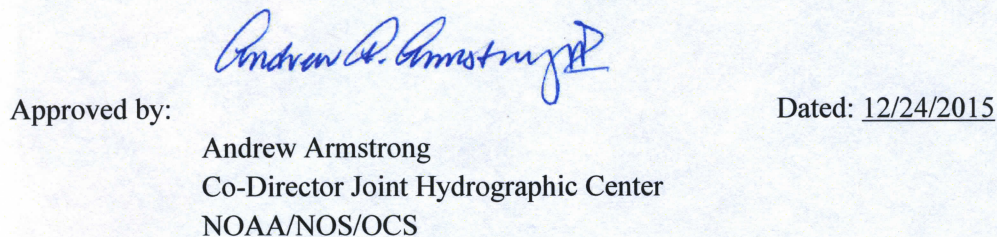 Andrew A. Armstrong III
Approved by: Dated: 12/24/2015
Andrew Armstrong
Co-Director Joint Hydrographic Center
NOAA/NOS/OCS